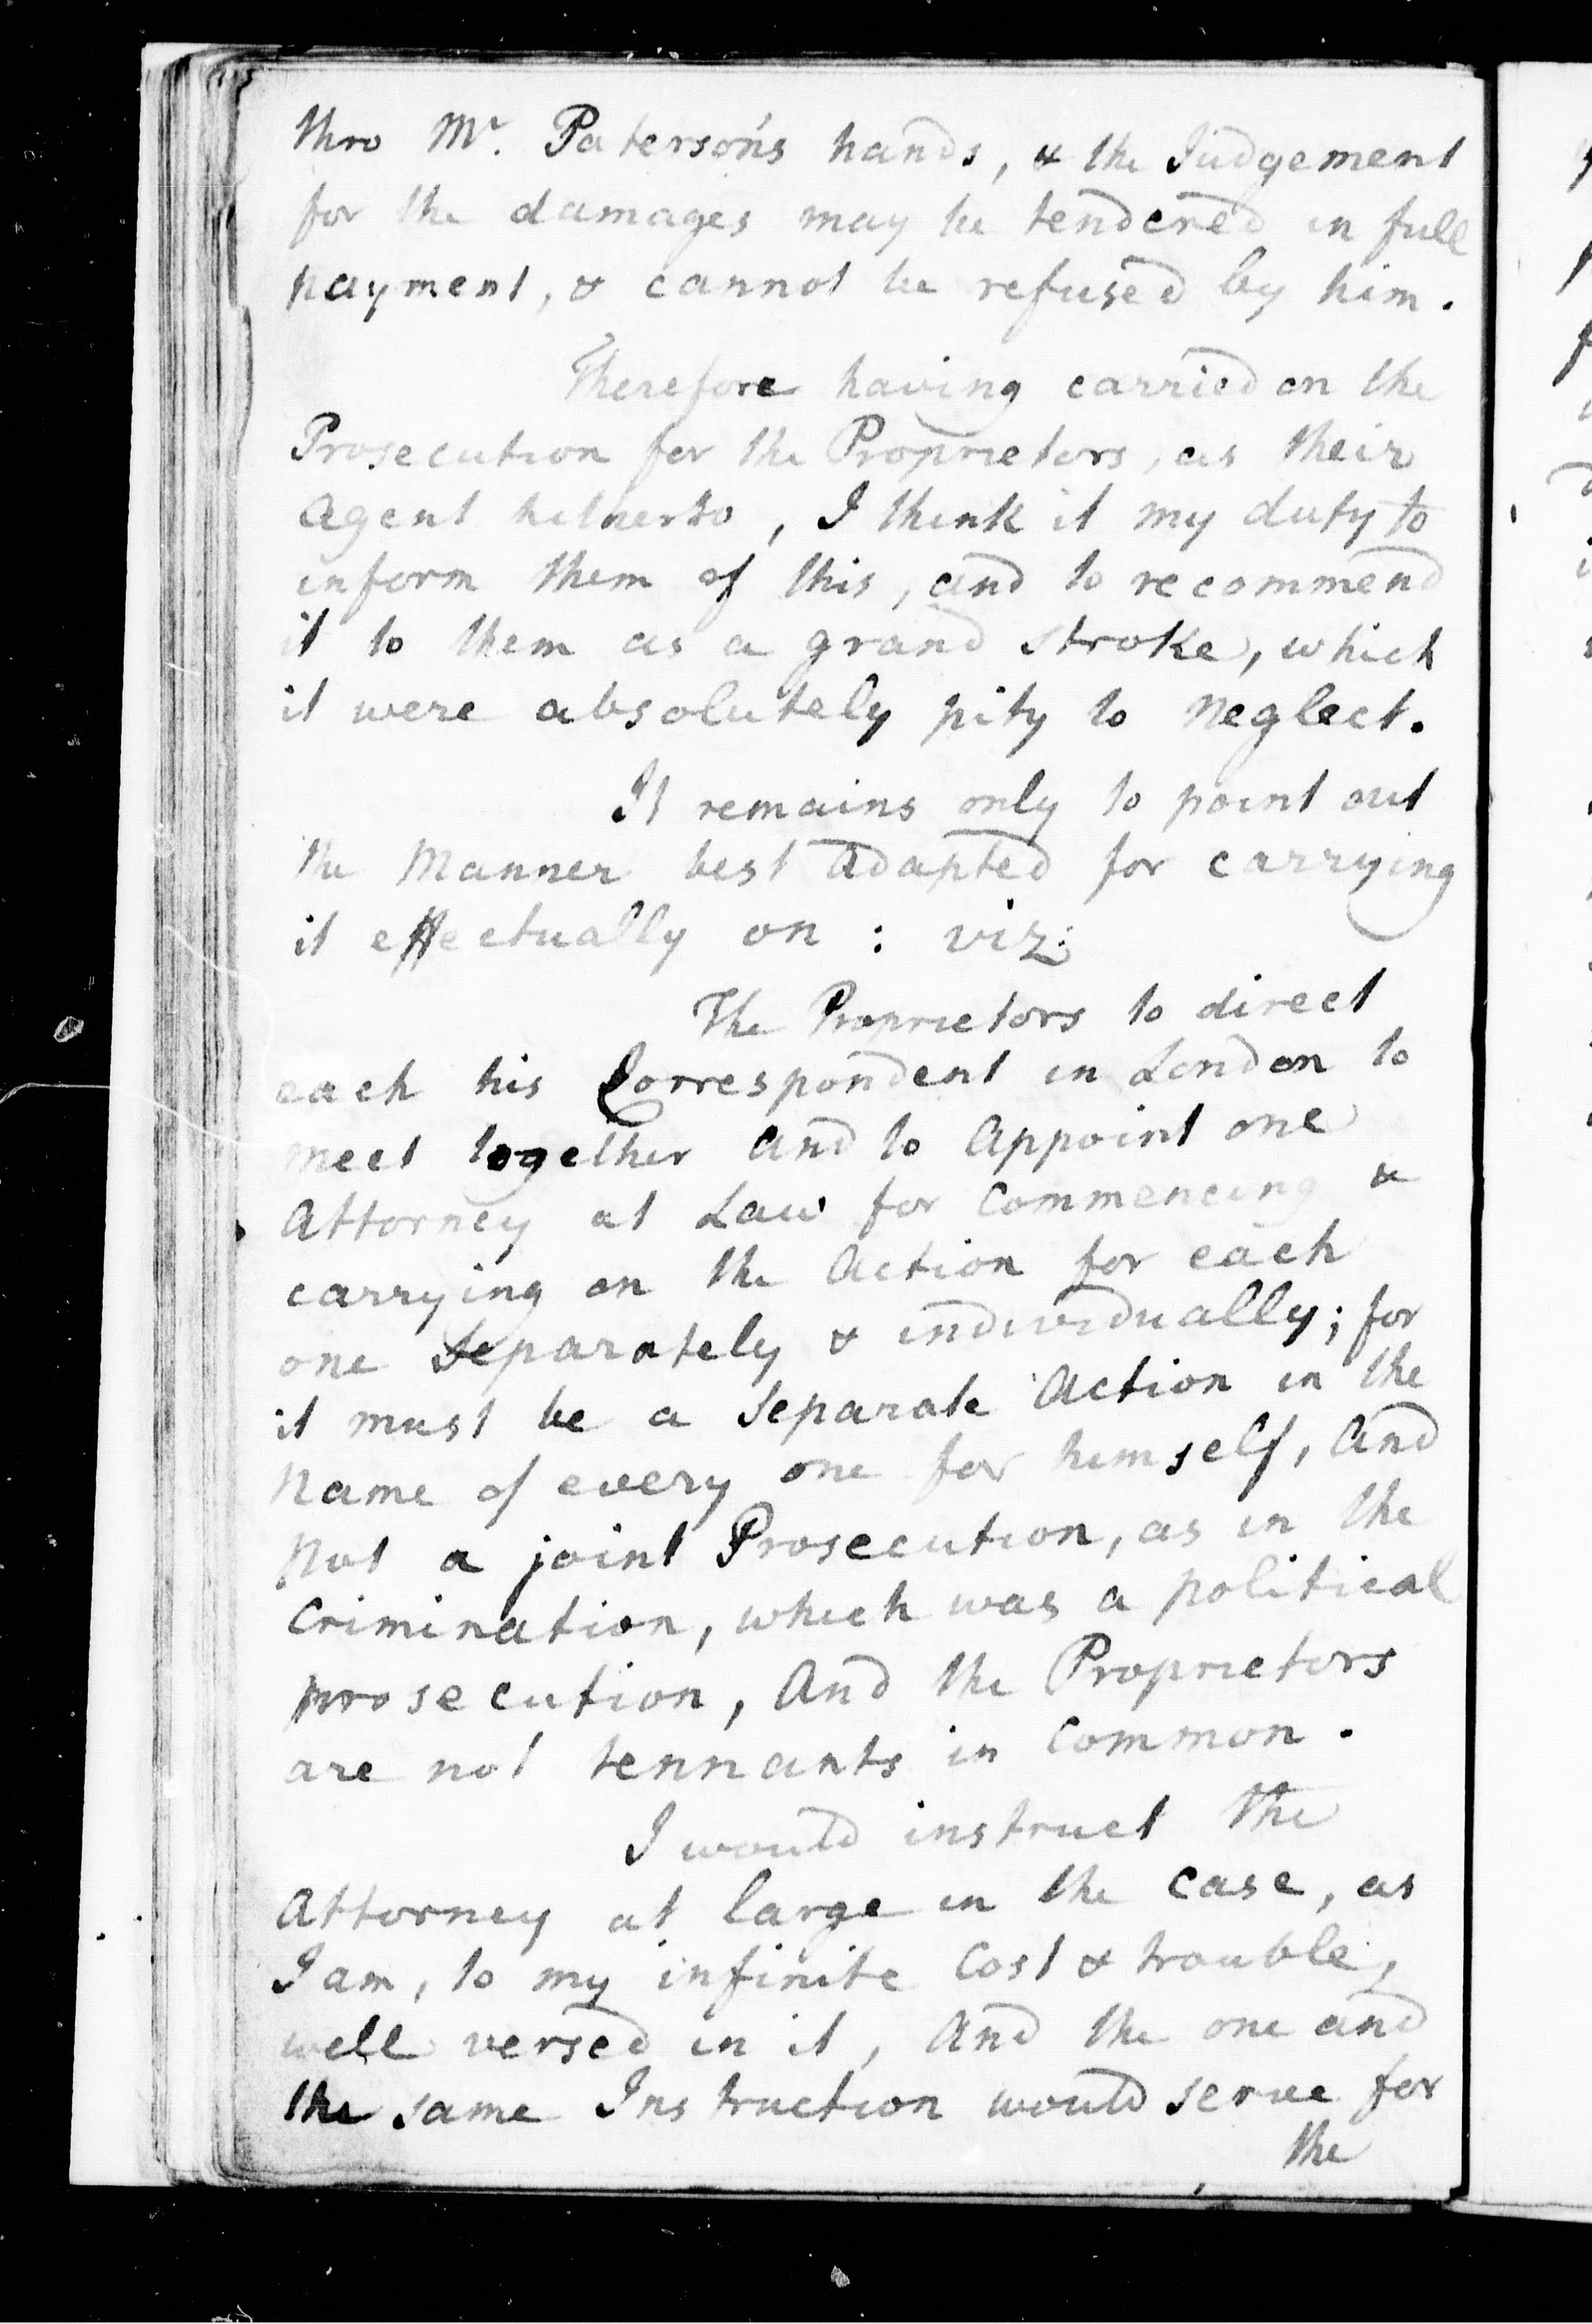 thro Mr. Paterson's hands, & the Judgement
for the damages may be tendered in full
payment, & cannot be refused by him.
Therefore having carried on the
Prosecution for the Proprietors, as their
Agent hitherto, I think it my duty to
inform them of this, and to recommend
it to them as a grand stroke, which
it were absolutely pity to neglect.
It remains only to point out
the Manner best adapted for carrying
it effectually on : viz:
The Proprietors to direct
each his Correspondent in London to
meet together and to Appoint one
Attorney at Law for Commencing &
carrying on the Action for each
one Separately & individually; for
it must be a Separate Action in the
Name of every one for himself, and
Not a joint Prosecution, as in the
Crimination, which was a political
prosecution, And the Proprietors
are not tennants in Common.
I would instruct the
Attorney at large in the case, as
I am, to my infinite Cost & trouble,
well versed in it, And the one and
the same Instruction would serve for
the